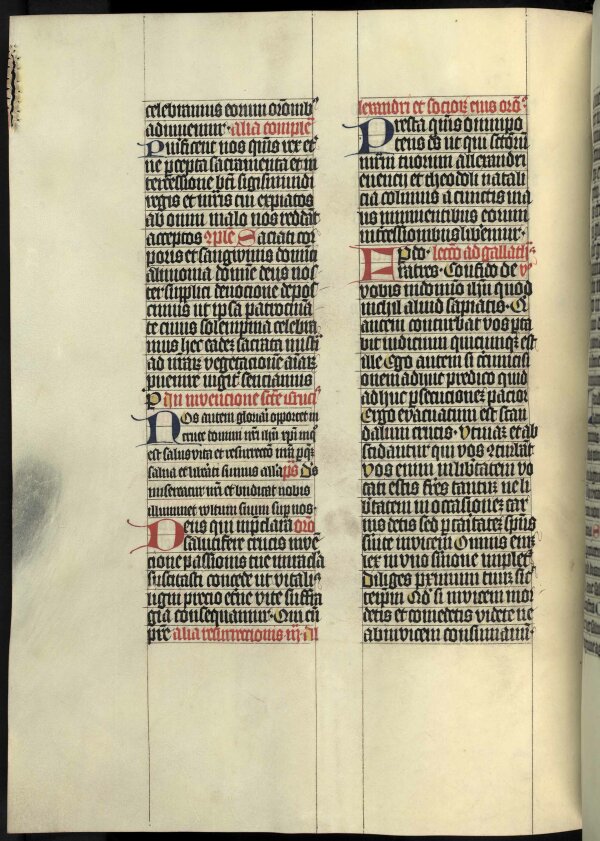 celebramus eorum oroīnib⁹
adiuuemur · alia comple
Purificent nos q̄s̄ rex et
ne p̄cepta sacramenta et in
tercessione bt̄i sigismundi
regis et m̄ris tui expiatos
ab omni malo nos reddāt
acceptos Saciati cor
poris et sangwinis domīci
alimonia domīe deus nos
ter supplici deuocione depos
cimus ut ip̄a patrocinā
te cuius solempnia celebra
mus hec eadē sacrata misti
ad vitaꝝ vegetacionē aīaꝝ
puenire iugit̄ senciamus
In inuencione sc̄te Cruc̄
Nos autem gloriari opportet in
cruce domini nr̄i ih̄u xp̄i in q°
est salus vita et resurrectō nr̄a p̄ quē
saluati et lib̄ati sumus alla p̄s Ds̄
misereatur nr̄i et bn̄dicat nobis
illuminet vultum suum sup nos ·
Deus qui in p̄clara oro
salutifere crucis inuē
cione passionis tue miracla
suscitasti concede ut vitalis
ligni precio et̄ne vite suffra
gia consequamur · Qui cū
pr̄e alia resurrectionis
lexandri et socioꝝ eius orō
Presta q̄s̄ om̄ipo
tens ds̄ ut qui sc̄torū
m̄rm̄ tuorum allexandri
euencii et theodoli natali
cia colimus a cunctis ma
lis imminentibus eorum
intercessionibus liberemur ·
lecc̄o ad gallath̄
Fratres · Confido de
vobis in domīo ih̄u quod
nichil aliud sapiatis · Q̄
autem conturbat vos p̄ta
bit iudicium quicunqꝫ est
ille Ego autem si circūcisi
onem adhuc predico quid
adhuc p̄secucionem pacior
Ergo euacuatum est scan
dalum crucis · Vtinaꝫ et ab
scidantur qui vos cōturbāt
Vos enim in lib̄tatem vo
cati estis frēs tantūꝫ ne li
b̄tatem in occasionēꝫ car
nis detis sed p̄ caritatēꝫ sp̄us
s̄uite inuicem Omnis enī
lex in vno s̄mone implet̄
Diliges proximum tuūꝫ sic̄
teip̄m Qd̄ si inuicem mor
detis et comedetis videte ne
ab inuicem consumami ·